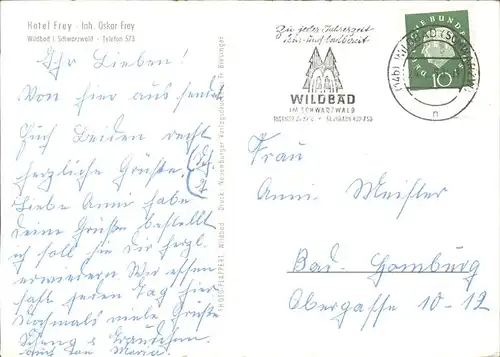 Hotel Frey - Inh. Oskar Frey
Wildbad i. Schwarzwald - Telefon 573
Ihr Lieben!
Von hier aus sendet
Euch Beiden recht
herzliche Grüße.
Liebe Anni habe
Deine Grüße bestellt
ich soll sie Dir herzl.
erwidern. Wir essen
fast jeden Tag hier
Nochmals viele Grüße
PHOTO Wildbad Druck: Neuenbürger Verlagsdruckerei Fr. Biesinger
Zu jeder Jahreszeit
WILDBAD
IM SCHWARZWALD
WILDBAD (SCHWARZW)
DEUTSCHE BUNDESPOST
10
Frau
Anni Meister
Bad-Homburg
Obergasse 10-12